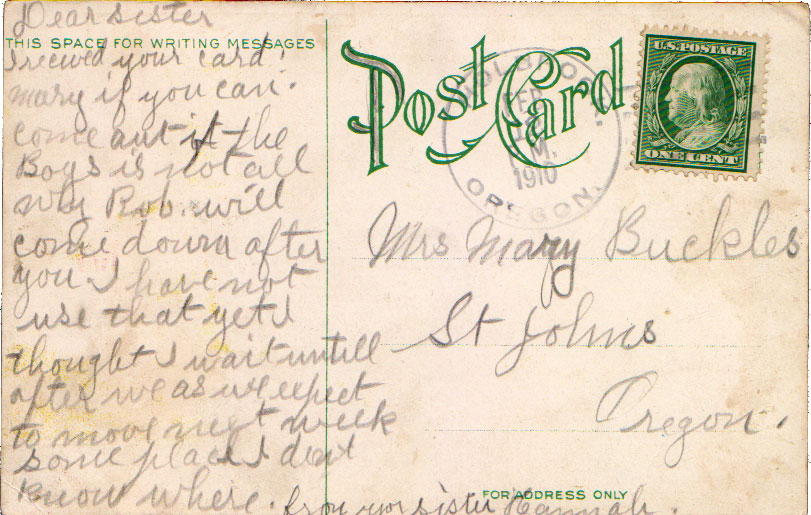 Dear sister
THIS SPACE FOR WRITING MESSAGES
I recived your card.
mary if you can.
come aut if the
Boys is not all
Rob. will
come down after
you I have not
use that yet I
thought I wait untill
after we as we expect
to move next week
some place I dont
know where. from your sister Hannah.
POST CARD
HOLBROOK
FEB
M.
1910
OREGON.
U.S. POSTAGE
ONE CENT
Mrs Mary Buckles
St Johns
Oregon.
FOR ADDRESS ONLY